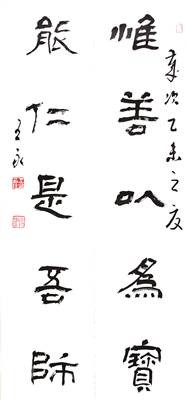 歲次乙未之夏
惟善以為寶
能仁是吾師